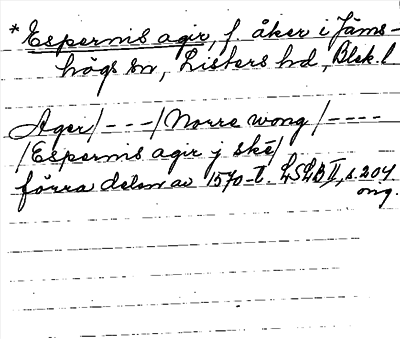 * Espernis agir, f. åker i Jäms-
högs sn, Listers hd, Blek. l
Ager/ - - - / Norre wong / - - - -
/ Espernis agir j skē /
förra delen av 1570-t. LSLB II, s. 204
orig.